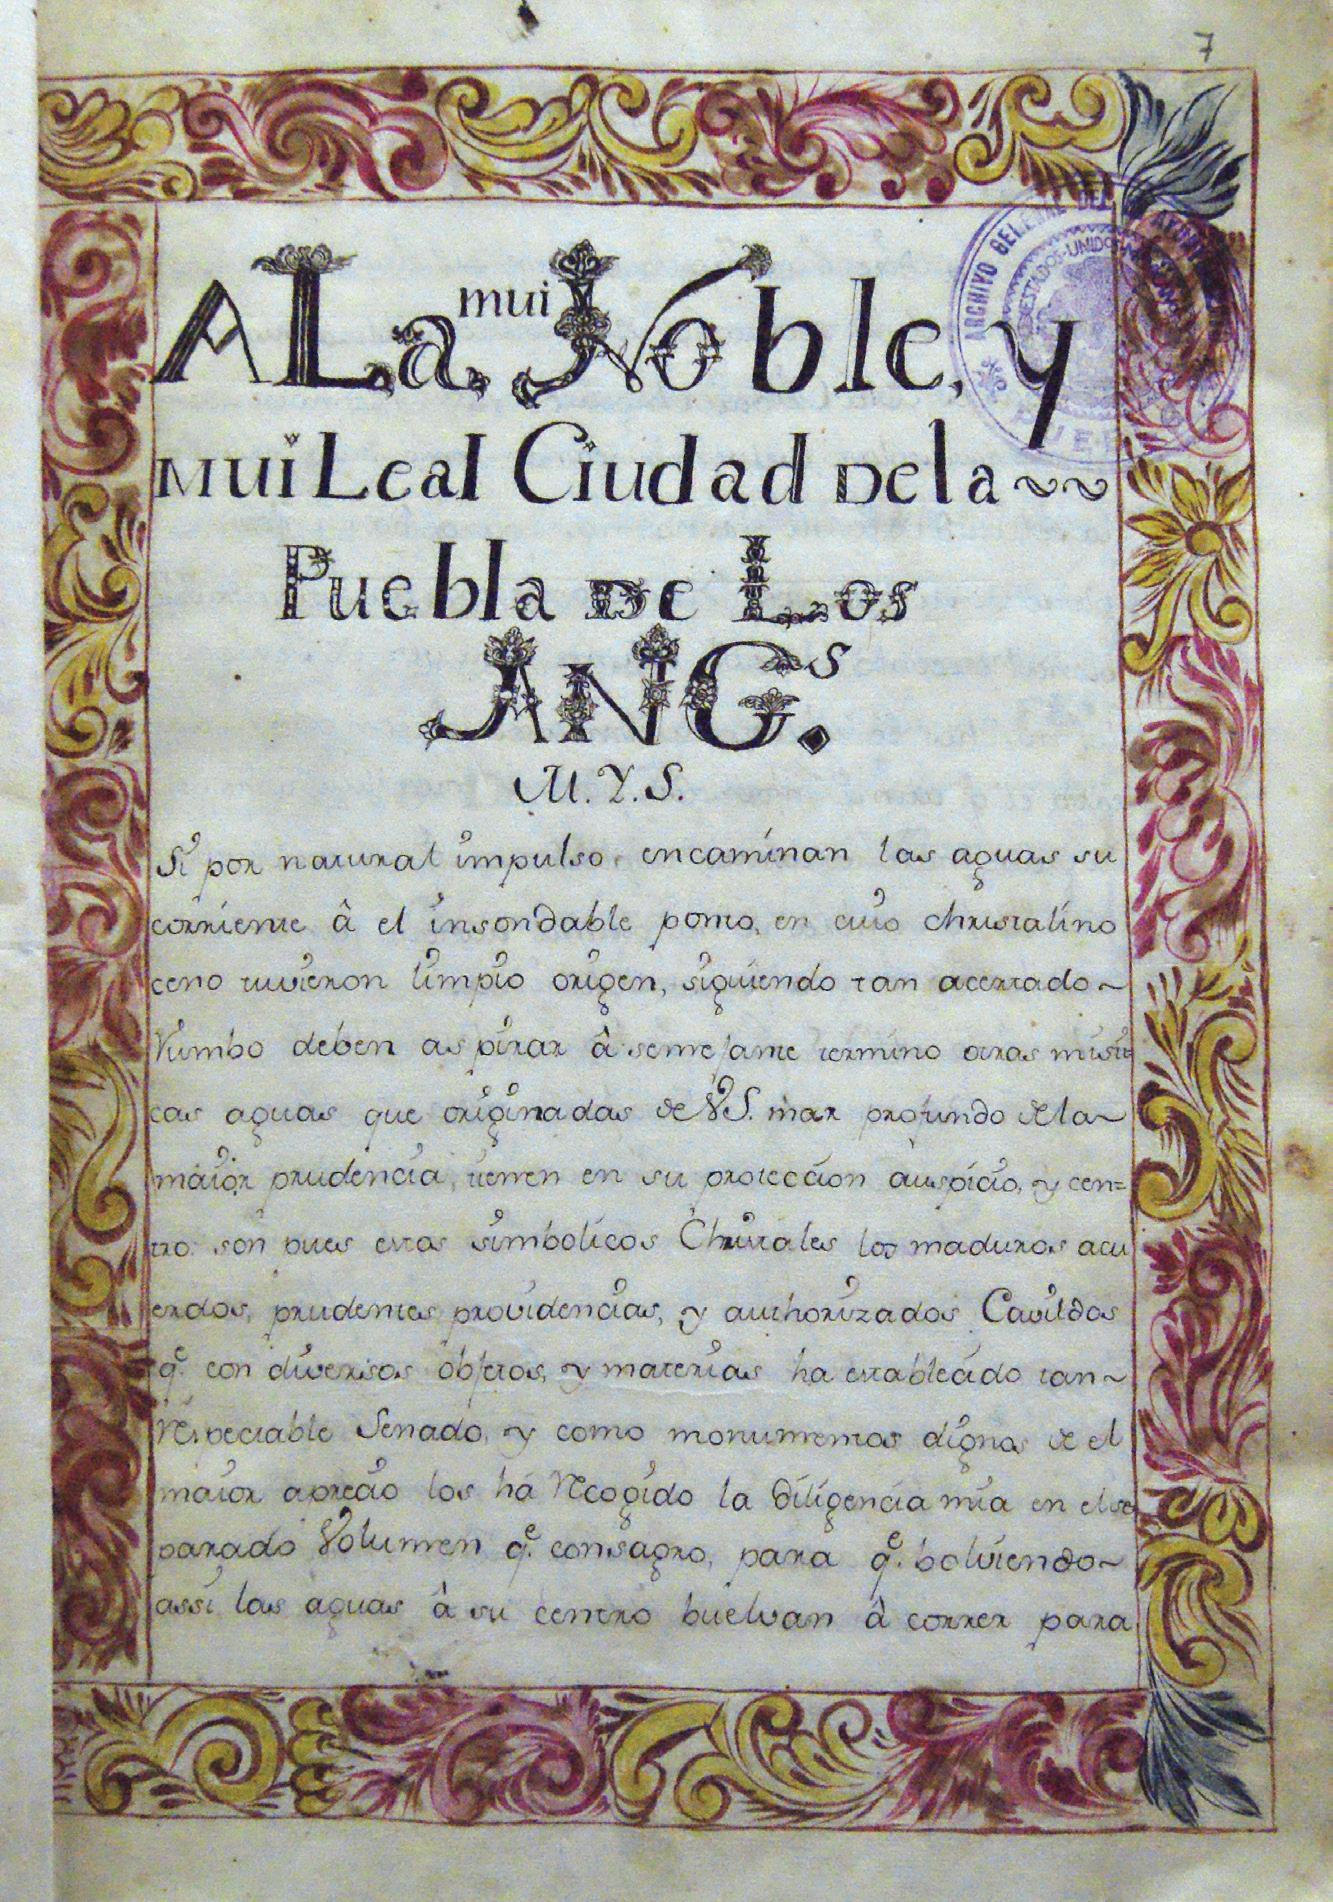 7
ARCHIVO GENERAL DEL
ESTADOS-UNIDOS
A La mui Noble, y
mui Leal Ciudad de la
Puebla de Los
ANG.s
M. Y. S.
Si por natural impulso, encaminan las aguas su
corriente â el insondable ponto, en cuio christalino
ceno tuvieron limpio origen, siguiendo tan acertado
Rumbo deben aspirar â semejante termino otras misti
cas aguas que originadas de V.S. mar profundo de la
maior prudencia, tienen en su proteccion auspicio, y cen=
tro: son pues estos simbolicos Christales los maduros acu
erdos, prudentes providencias, y authorizados Cavildos
q.e con diversos objetos, y materias ha establecido tan
Respectable Senado, y como monumentos dignos de el
maior aprecio los há Recogido la diligencia mia en el se
parado Volumen q.e consagro, para q.e bolviendo
assi las aguas â su centro buelvan â correr para